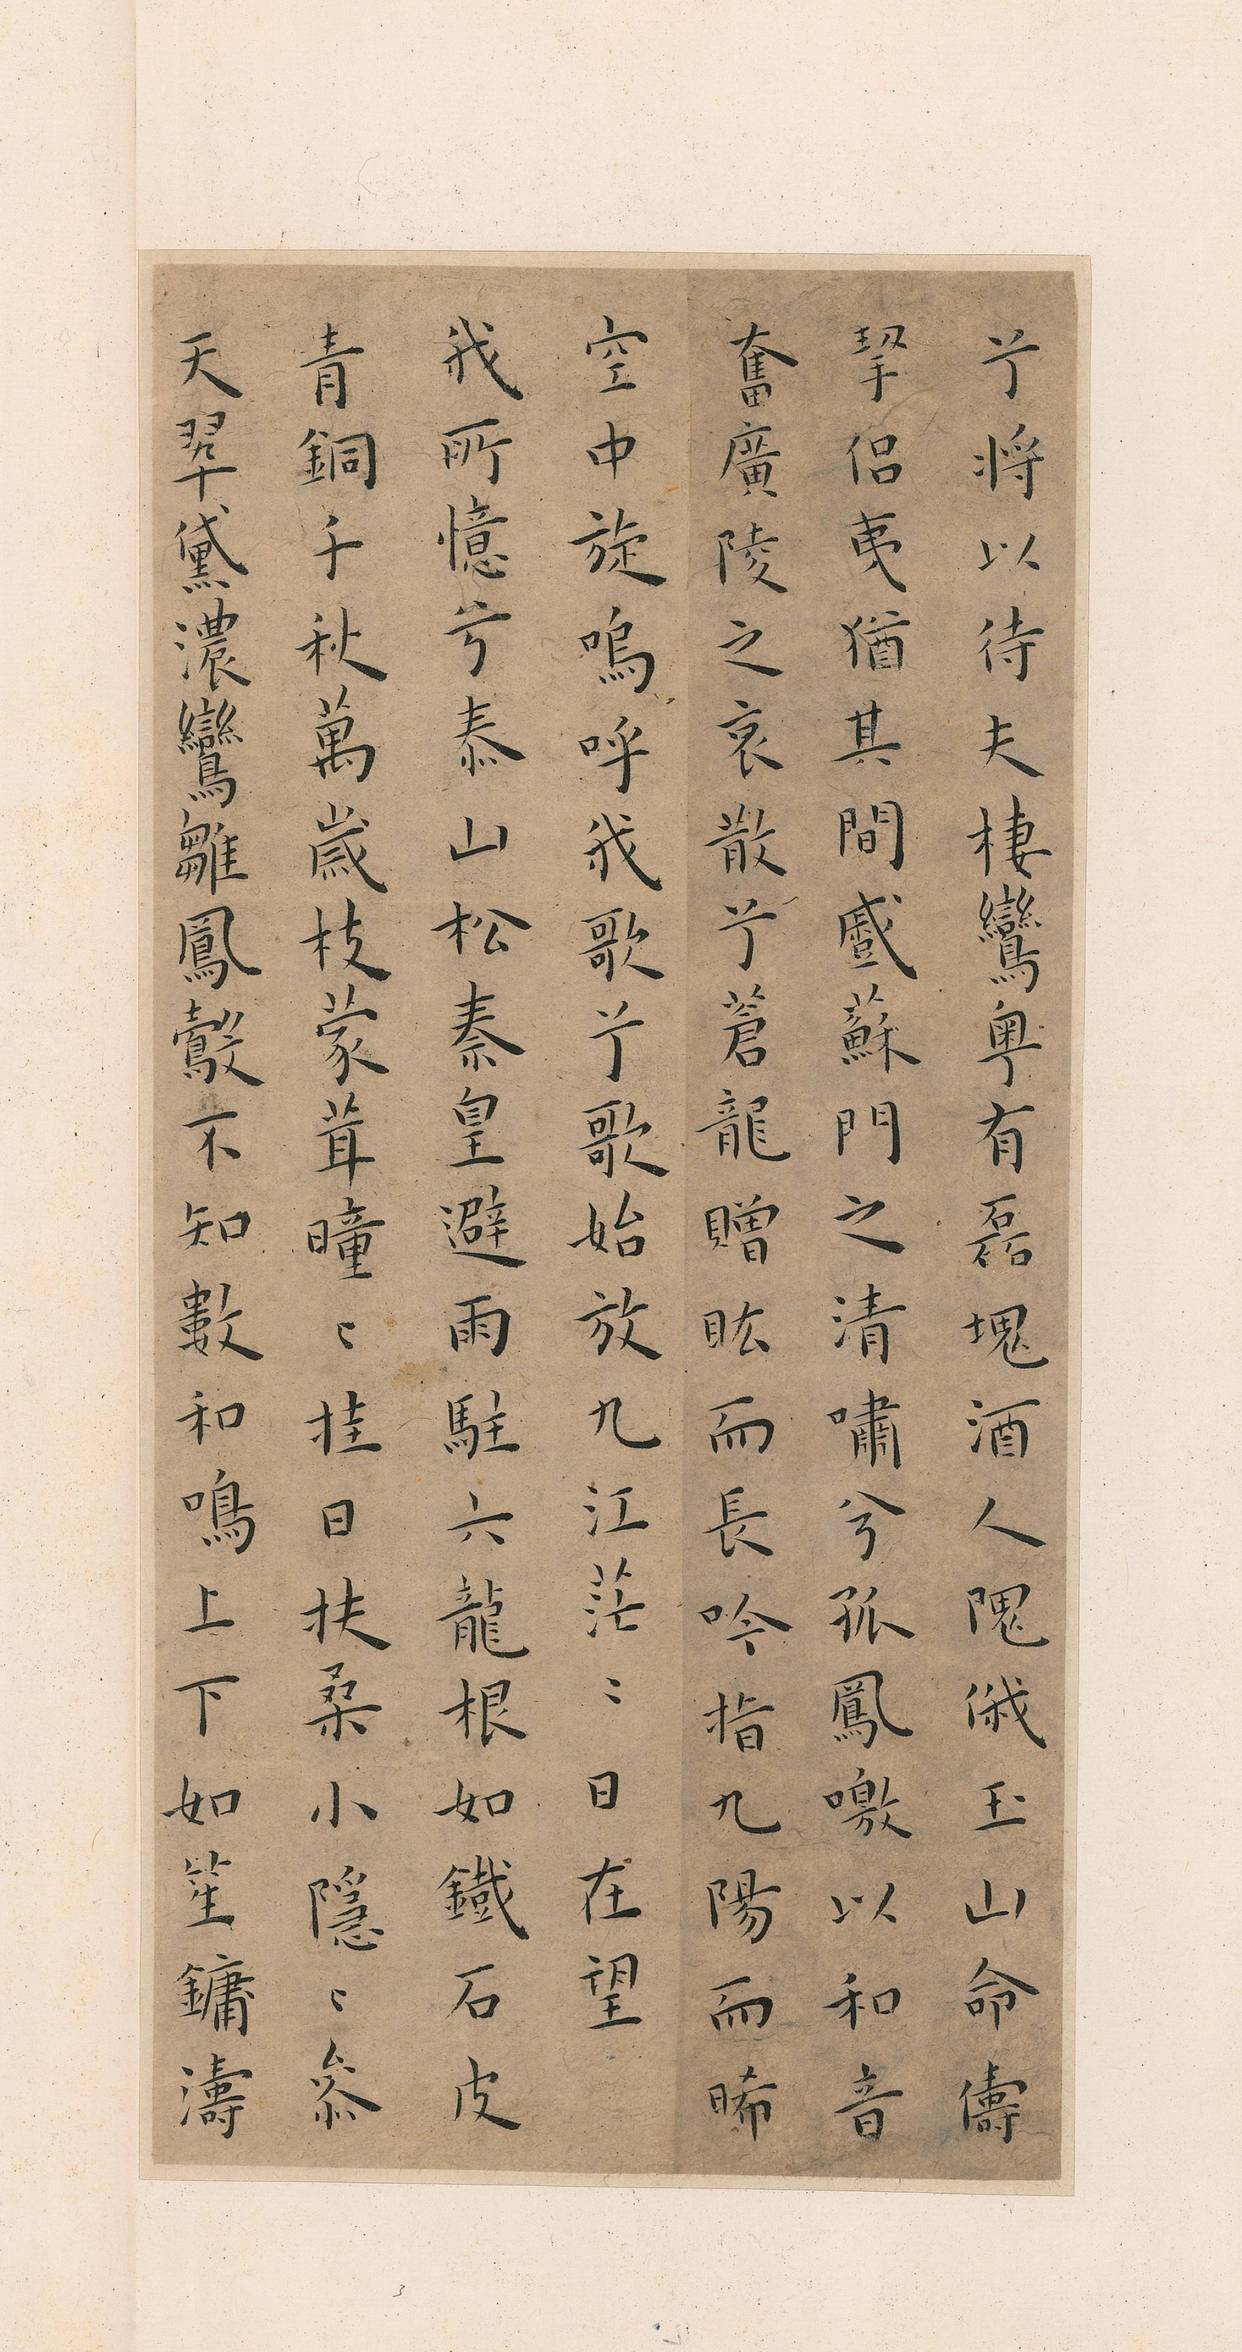 兮將以待夫棲鸞粤有磊塊酒人隗俄玉山命儔
挈侶夷猶其間蹙蘇門之清嘯兮孤鳳噭以和音
奮廣陵之哀散兮蒼龍贈眩而長吟指九陽而晞
空中旋嗚呼我歌兮歌始放九江茫〻日在望
我所憶兮泰山松秦皇避雨駐六龍根如鐵石皮
青銅千秋萬歲枝蒙茸曈〻挂日扶桑小隱〻參
天翠黛濃鸞雛鳳鷇不知數和鳴上下如笙鏞濤